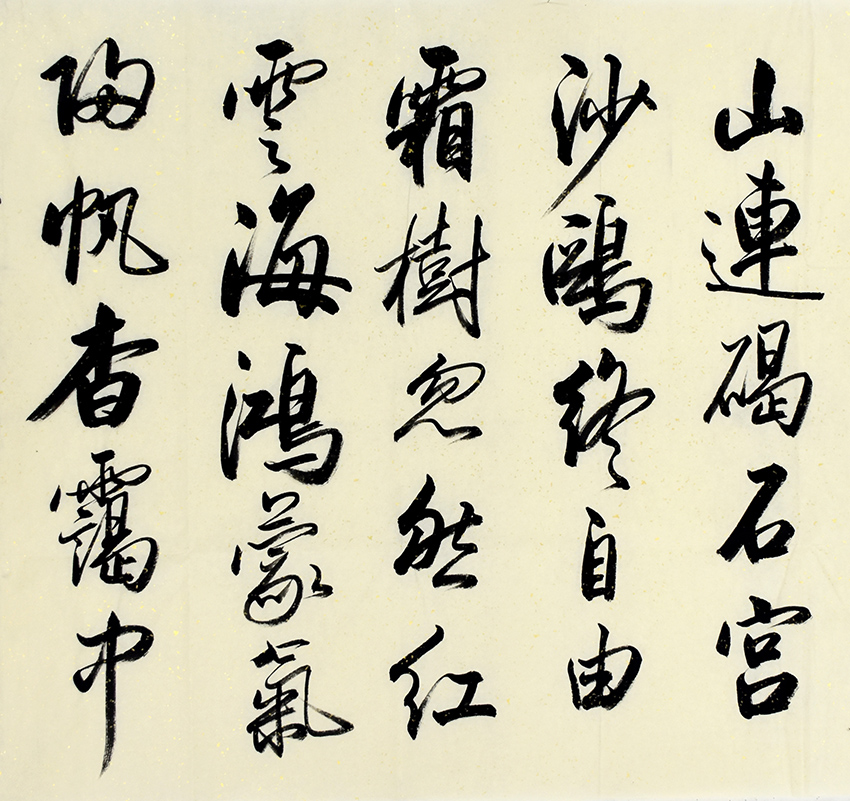 山連碣石宮
沙鷗終自由
霜樹忽然紅
雲海鴻蒙氣
歸帆杳靄中